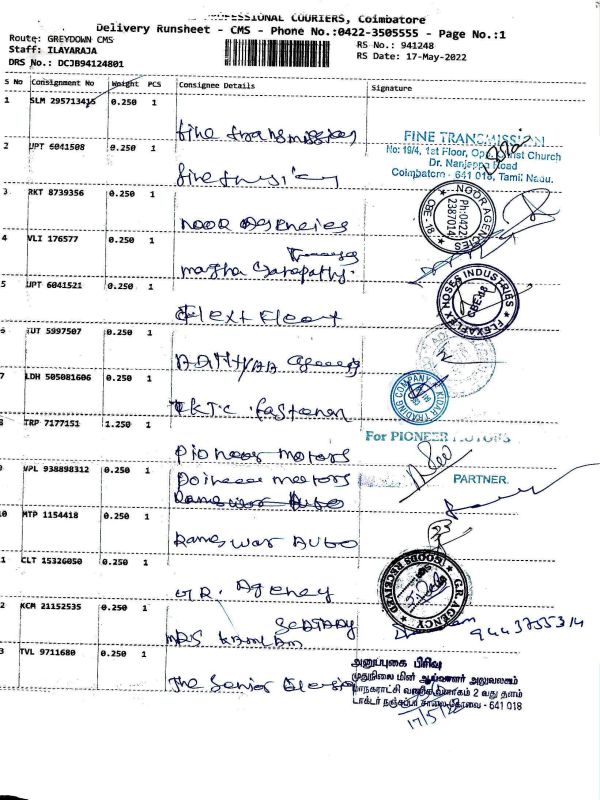 PROFESSIONAL COURIERS, Coimbatore
Delivery Runsheet - CMS - Phone No.:0422-3505555 - Page No.:1
Route: GREYDOWN CMS
Staff: ILAYARAJA
DRS No.: DCJB94124801
RS No.: 941248
RS Date: 17-May-2022
S No Consignment No Weight PCS Consignee Details Signature
1 SLM 295713415 0.250 1
fine transmission
FINE TRANSMISSION
No: 19/4, 1st Floor, Christ Church
Dr. Nanjappa Road
Coimbatore - 641 018, Tamil Nadu.
2 UPT 6041508 0.250 1
3 RKT 8739356 0.250 1
NOOR AGENCIES
NOOR AGENCIES
Ph:0422
2387014
CBE-18
4 VLI 176577 0.250 1
5 UPT 6041521 0.250 1
FLEXAFLEX HOSES INDUSTRIES
CBE-18
6 TUT 5997507 0.250 1
7 LDH 505081606 0.250 1
KIDAR TRADING COMPANY
8 TRP 7177151 1.250 1
Pioneer motors
For PIONEER MOTORS
PARTNER.
9 VPL 938898312 0.250 1
motors
Rameswar Auto
10 MTP 1154418 0.250 1
Rameswar Auto
11 CLT 15326050 0.250 1
G.R. Agency
G.R. AGENCY
GOODS RECEIVED
12 KCM 21152535 0.250 1
9443755314
13 TVL 9711680 0.250 1
The Senior
அனுப்புகை பிரிவு
முதுநிலை மின் ஆய்வாளர் அலுவலகம்
மாநகராட்சி வணிக வளாகம் 2 வது தளம்
டாக்டர் நஞ்சப்பா சாலை, கோவை - 641 018
17/5/22